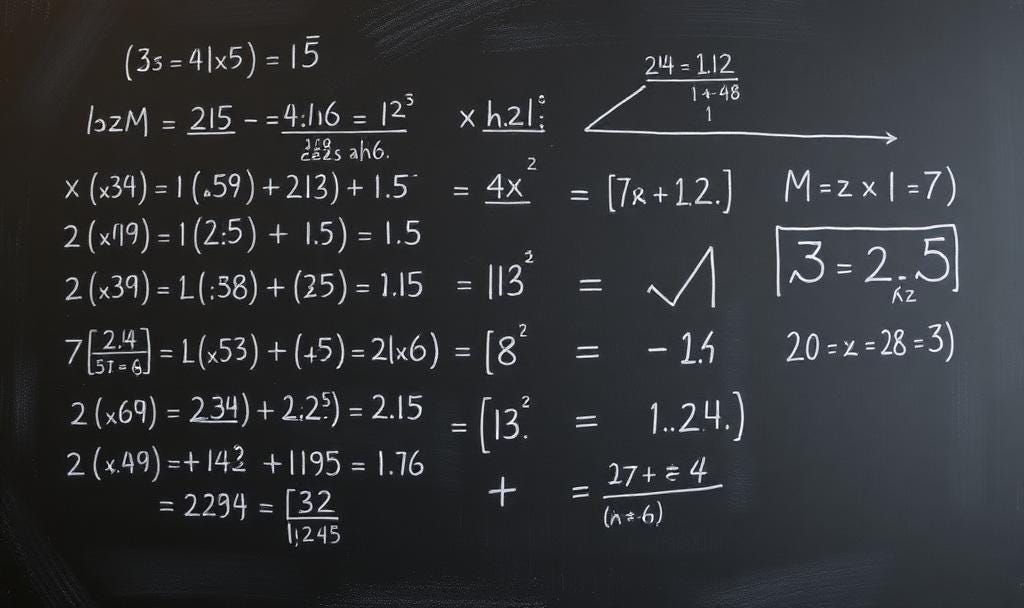 (33 = 41x5) = 15
bzM = 215 - = 4:1.16 = 12³ x h.21:
ah6.
24 = 1.12
1 + -48
1
x (x34) = 1 (.59) + 213) + 1.5 = 4x² = [7x + 1.2.] M = z x 1 = 7)
2 (x19) = 1 (2:5) + 1.5) = 1.5
3 = 2.5
2 (x39) = 1 (:58) + (35) = 1.15 = 113² = √
7 [2.4 = 1 (x53) + (+5) = 21x6) = [8² = - 1.5 20 = x = 28 = 3)
51 = 6]
2 (x69) = 234) + 2.2⁵) = 2.15 = [13.² = 1..24.)
2 (x.49) = + 142 + 1195 = 1.76
+ = 27 + = 4
(n = 6)
= 2294 = [32
1,245